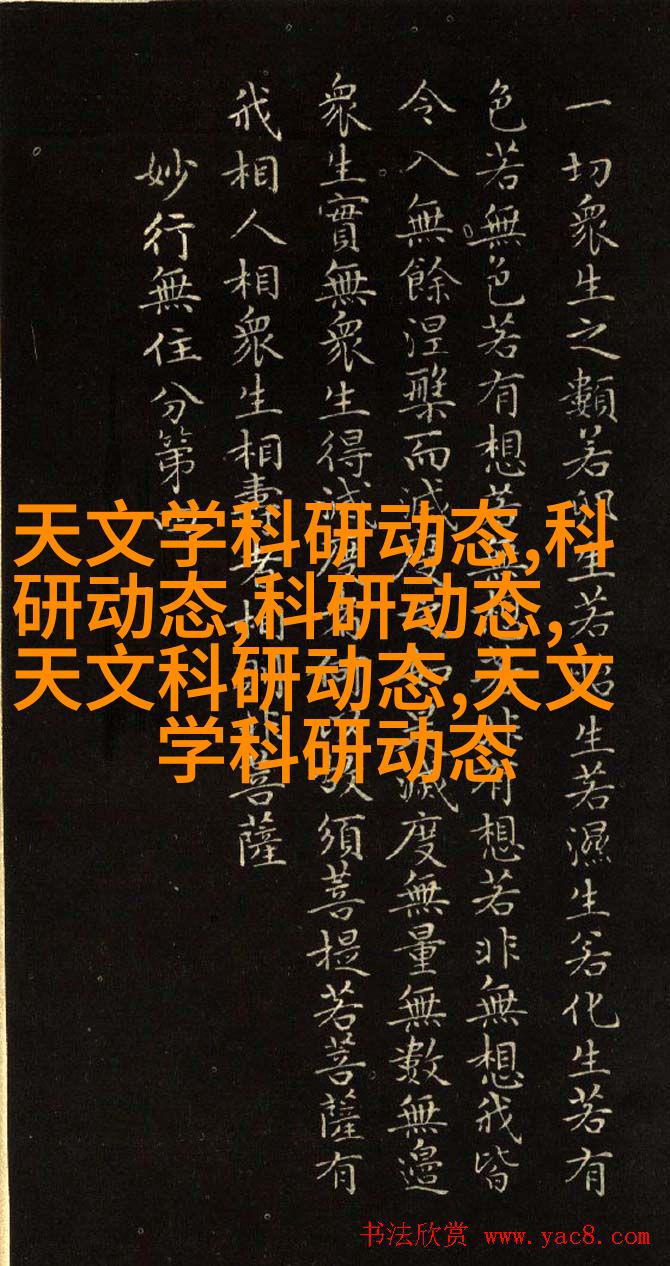 一切衆生之類若卵生若胎生若濕生若化生若有
色若無色若有想若無想若非有想若非無想我皆
令入無餘涅槃而滅度之如是滅度無量無數無邊
衆生實無衆生得滅度者何以故須菩提若菩薩有
我相人相衆生相壽者相即非菩薩
妙行無住分第
天文学科研动态,科
研动态,科研动态,
天文科研动态,天文
学科研动态
书法欣赏 www.yac8.com